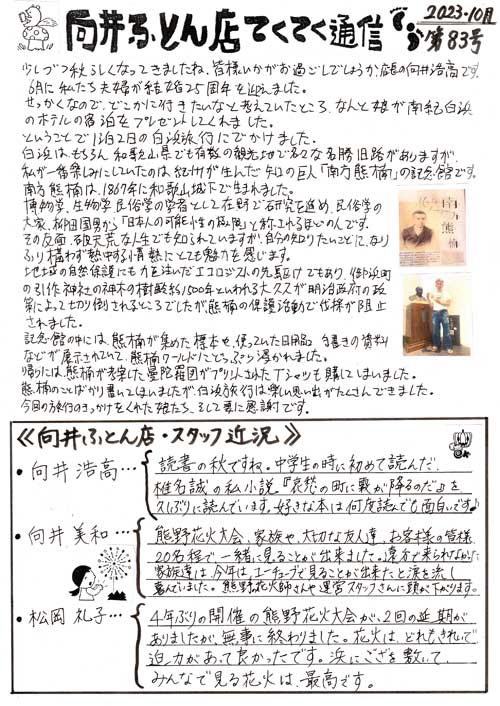 向井ふとん店てくてく通信
2023・10月
第83号
少しづつ秋らしくなってきましたね、皆様いかがお過ごしでしょうか、店長の向井浩高です。
6月に私たち夫婦が結婚25周年を迎えました。
せっかくなので、どこかに行きたいなと考えていたところ、なんと娘が南紀白浜
のホテルの宿泊をプレゼントしてくれました。
ということで1泊2日の白浜旅行にでかけました。
白浜はもちろん和歌山県でも有数の観光地で名々な名勝旧跡がありますが、
私が一番楽しみにしていたのは紀州が生んだ知の巨人「南方熊楠」の記念館です。
南方熊楠は、1867年に和歌山城下で生まれました。
博物学、生物学、民俗学の学者として在野で研究を進め、民俗学の
大家、柳田国男から「日本人の可能性の極限」と称される程の人です。
その反面、破天荒な人生でも知られていますが、自分の知りたいことに、なり
ふり構わず熱中する情熱にとても魅力を感じます。
地域の自然保護にも力を注いだエコロジストの先駆けでもあり、御浜町
の引作神社の神木の樹齢約1500年といわれる大クスが明治政府の政
策によって切り倒されるところでしたが、熊楠の保護活動で伐採が阻止
されました。
記念館の中には、熊楠が集めた標本や、使っていた日用品、手書きの資料
などが展示されていて、熊楠ワールドにどっぷり浸かれました。
帰りには、熊楠が考案した曼陀羅図がプリントされたTシャツも購入してしまいました。
熊楠のことばかり書いてしまいましたが、白浜旅行は楽しい思い出がたくさんできました。
今回の旅行のきっかけをくれた娘たち、そして妻に感謝です。
南方熊楠
《向井ふとん店・スタッフ近況》
・向井浩高…
読書の秋ですね。中学生の時に初めて読んだ、
椎名誠の私小説『哀愁の町に霧が降るのだ』を
久しぶりに読んでいます。好きな本は何度読んでも面白いです♪
・向井美和…
熊野花火大会、家族や、大切な友人達、お客様の皆様、
20名程で一緒に見ることが出来ました。遠方で来られなかった
家族達は、今年は、ユーチューブで見ることが出来たと涙を流し
喜んでいました。熊野花火師さんや運営スタッフさんに頭が下がります。
・松岡礼子…
4年ぶりの開催の熊野花火大会が、2回の延期が
ありましたが、無事に終わりました。花火は、どれもきれいで
迫力があって良かったです。浜にござを敷いて、
みんなで見る花火は、最高です。